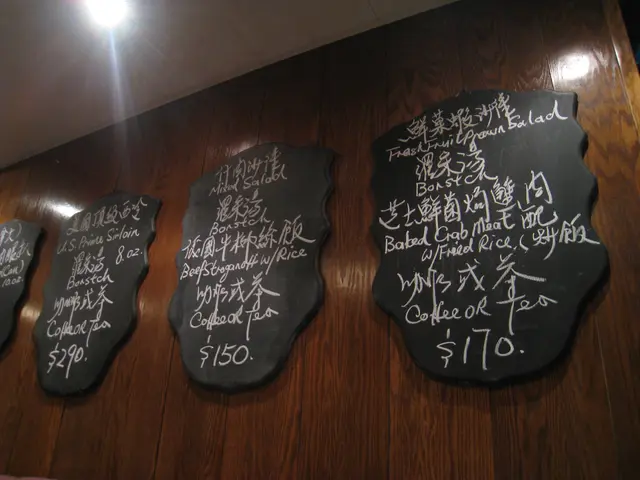 oz.)
美國頂級西冷
U.S. Prime Sirloin
8 oz.
羅宋湯
Borstch
咖啡或茶
Coffee OR Tea
$290.
什肉沙律
Mixed Salad
羅宋湯
Borstch
俄國牛柳絲飯
Beef Stroganoff w/ Rice
咖啡或茶
Coffee OR Tea
$150.
鮮菓蝦沙律
Fresh Fruit Prawn Salad
羅宋湯
Borstch
芝士鮮菌焗蟹肉
Baked Crab Meat 配
w/ Fried Rice 炒飯
咖啡或茶
Coffee OR Tea
$170.